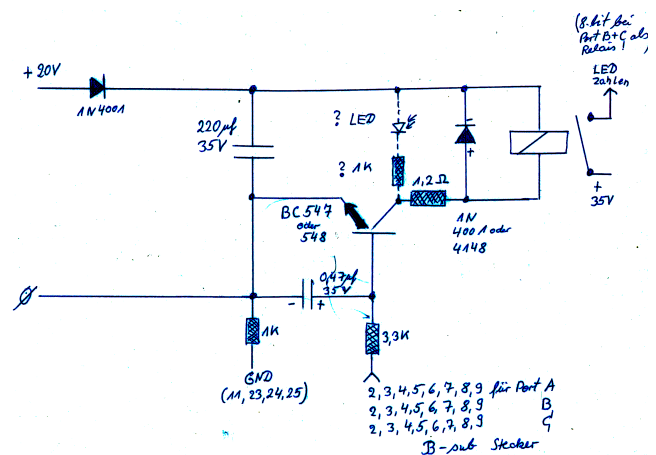 (8-bit bei
Port B+C als
Relais!
LED
Zahlen
+ 20V
1N4001
220µf
35V
? LED
? 1K
1,2Ω
+
35V
BC547
oder
548
1N
4001 oder
4148
0,47µf
35V
- +
1K
3,3K
GND
(11, 23, 24, 25)
2, 3, 4, 5, 6, 7, 8, 9 für Port A
2, 3, 4, 5, 6, 7, 8, 9 B
2, 3, 4, 5, 6, 7, 8, 9 C
D-sub Stecker